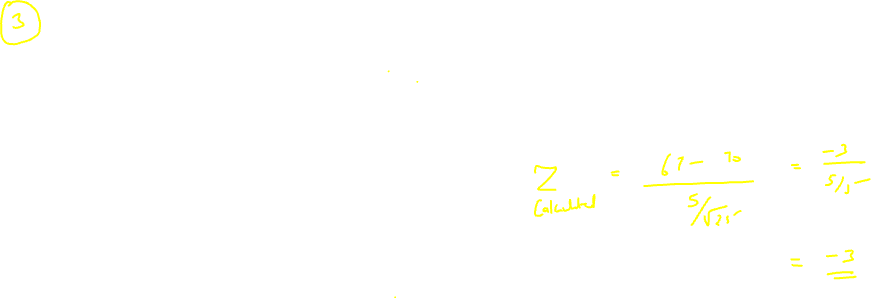 3
Z calculated = 67 - 70 / 5/√25 = -3 / 5/5
= -3